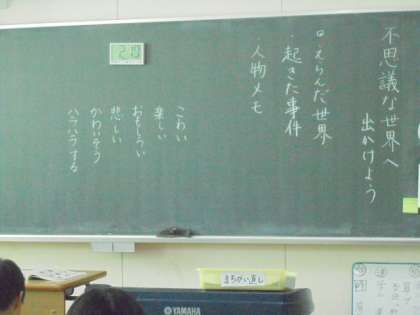 不思議な世界へ
出かけよう
・えらんだ世界
・起きた事件
・人物メモ
こわい
楽しい
おもしろい
悲しい
かわいそう
ハラハラする
まちがい直し
YAMAHA